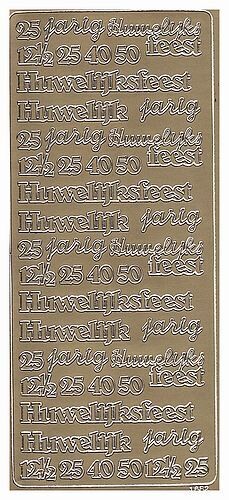 25 jarig Huwelijks
12½ 25 40 50 feest
Huwelijksfeest
Huwelijk jarig
25 jarig Huwelijks
12½ 25 40 50 feest
Huwelijksfeest
Huwelijk jarig
25 jarig Huwelijks
12½ 25 40 50 feest
Huwelijksfeest
Huwelijk jarig
25 jarig Huwelijks
12½ 25 40 50 feest
Huwelijksfeest
Huwelijk jarig
12½ 25 40 50 12½ 25